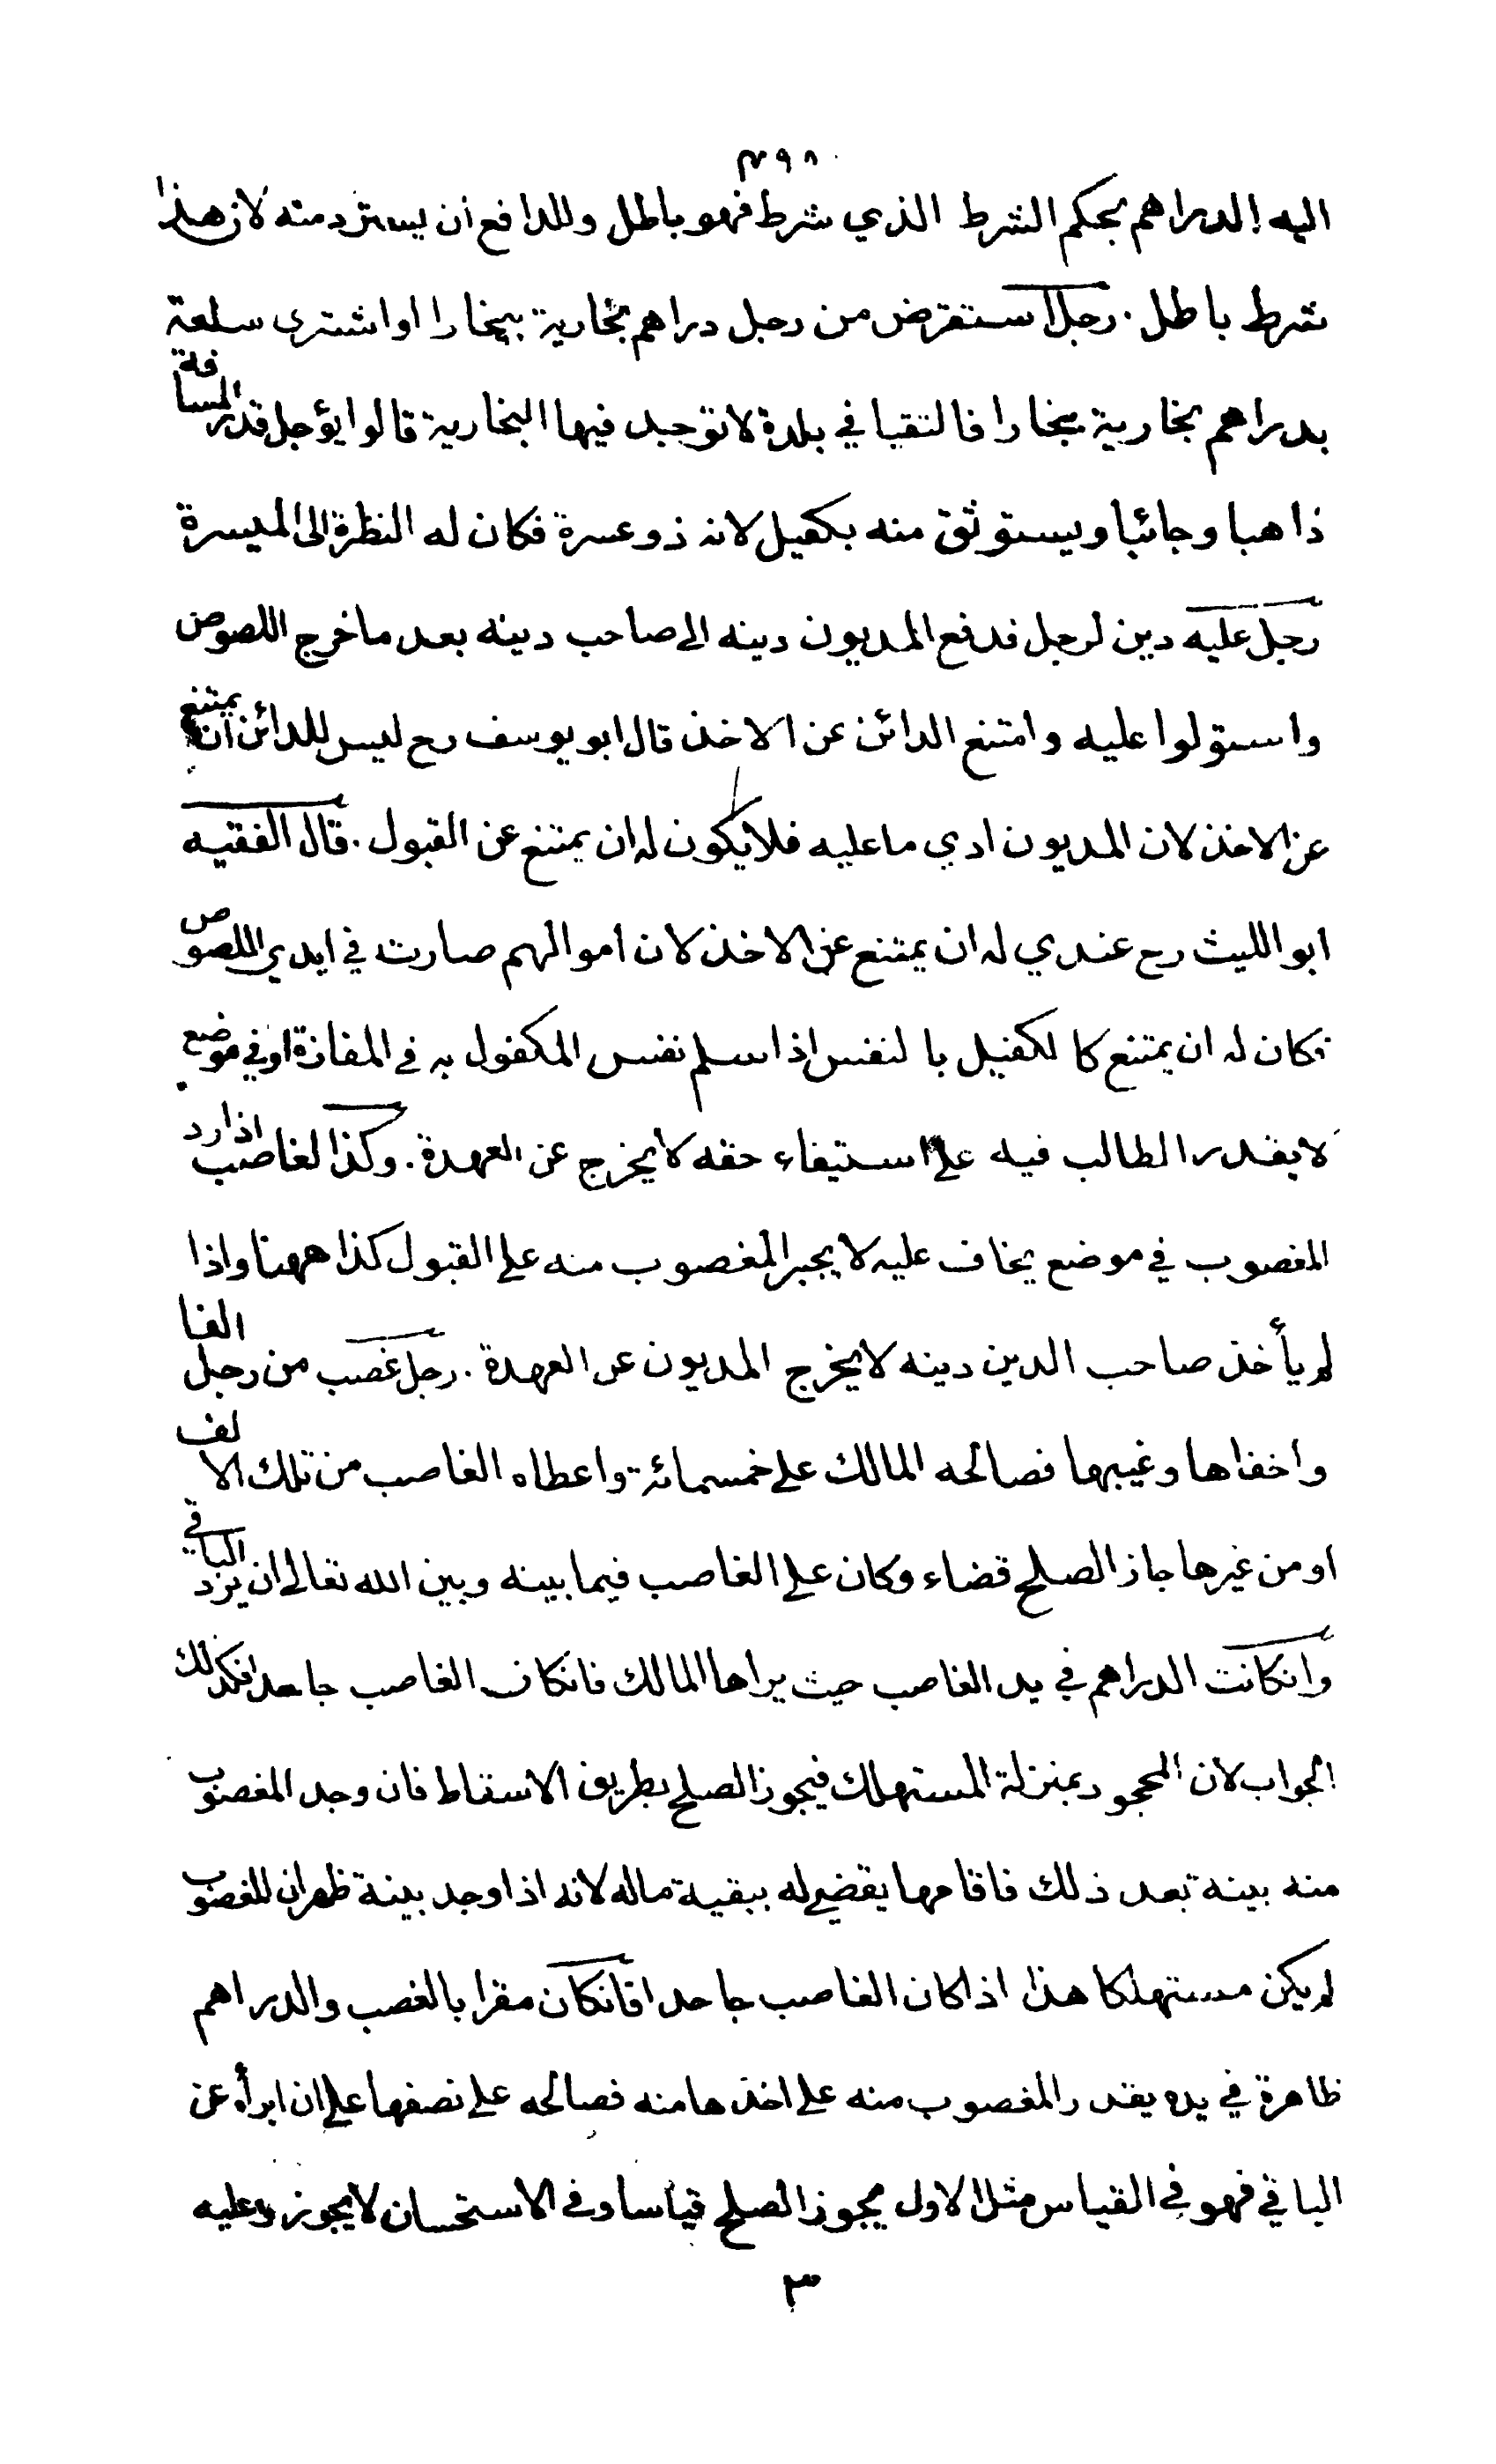 ٣٩٨
اليه الدراهم بحكم الشرط الذي شرط فهو باطل وللدافع ان يسترد منه لان هذا
شرط باطل . رجل استقرض من رجل دراهم بخارية ببخارا او اشترى سلعة
بدراهم بخارية ببخارا فالتقيا في بلدة لا توجد فيها البخارية قالوا يؤجل قدر المسافة
ذاهبا وجائيا ويستوثق منه بكفيل لانه ذو عسرة فكان له النظرة الى الميسرة
رجل عليه دين لرجل فدفع المديون دينه الى صاحب دينه بعد ما خرج اللصوص
واستولوا عليه وامتنع الدائن عن الاخذ قال ابو يوسف رح ليس للدائن ان يمتنع
عن الاخذ لان المديون ادي ما عليه فلا يكون له ان يمتنع عن القبول . قال الفقيه
ابو الليث رح عندي له ان يمتنع عن الاخذ لان اموالهم صارت في ايدي اللصوص
فكان له ان يمتنع كالكفيل بالنفس اذا سلم نفس المكفول به في المفازة او في موضع
لا يقدر الطالب فيه على استيفاء حقه لا يخرج عن العهدة . وكذا الغاصب اذا رد
المغصوب في موضع يخاف عليه لا يجبر المغصوب منه على القبول كذا ههنا واذا
لم يأخذ صاحب الدين دينه لا يخرج المديون عن العهدة . رجل غصب من رجل الفا
واخفاها وغيبها فصالحه المالك على خمسمائة واعطاه الغاصب من تلك الالف
او من غيرها جاز الصلح قضاء وكان على الغاصب فيما بينه وبين الله تعالى ان يرد الباقي
وانكانت الدراهم في يد الغاصب حيث يراها المالك فانكان الغاصب جاحدا فكذلك
الجواب لان المجحود بمنزلة المستهلك فيجوز الصلح بطريق الاسقاط فان وجد المغصوب
منه بينة بعد ذلك فاقامها يقضي له ببقية ماله لانه اذا وجد بينة ظهر ان المغصوب
لم يكن مستهلكا هذا اذا كان الغاصب جاحدا فانكان مقرا بالغصب والدراهم
ظاهرة في يده يقدر المغصوب منه على اخذها منه فصالحه على نصفها على ان ابرأه عن
الباقي فهو في القياس مثل الاول يجوز الصلح قياسا وفي الاستحسان لا يجوز وعليه
٣